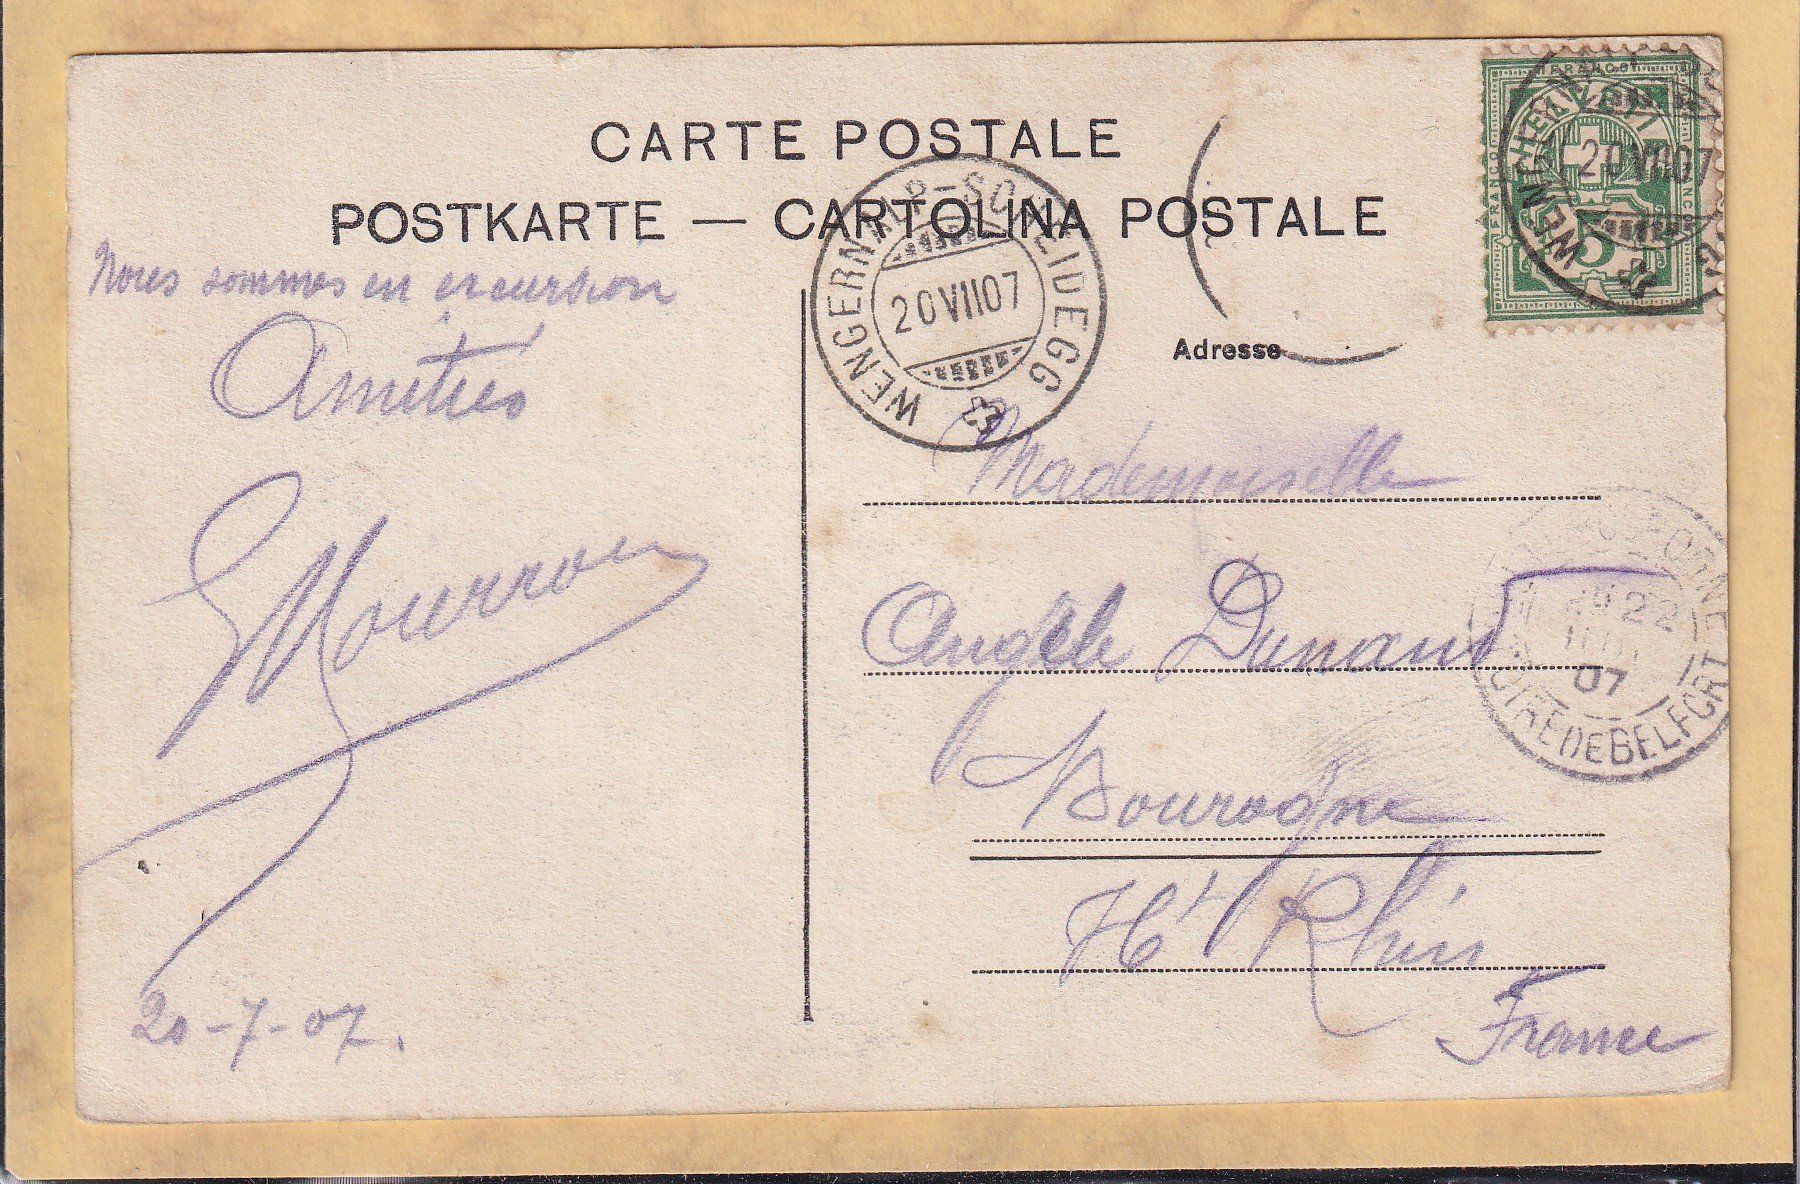 CARTE POSTALE
POSTKARTE — CARTOLINA POSTALE
Nous sommes en excursion
Amitiés
20-7-07.
WENGERNALP-SCHEIDEGG
20 VII 07
FRANCO
FRANCO
5
20 VII 07
Adresse
Mademoiselle
Angèle Dunand
Bourogne
Ht Rhin
France
22
07
BELFORT